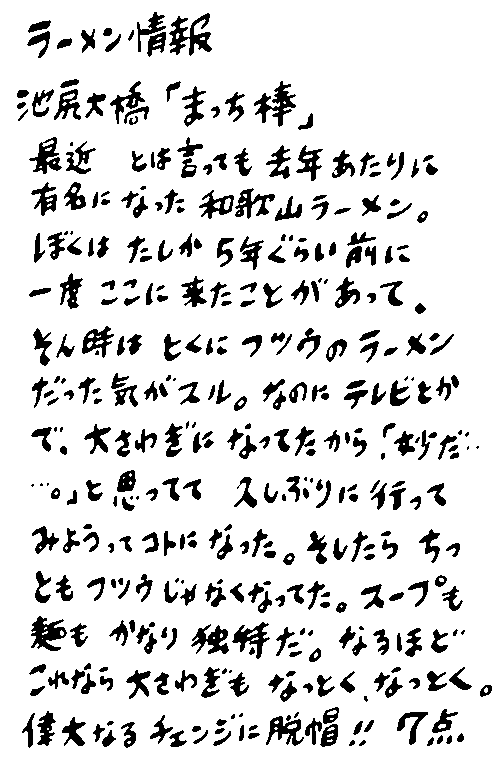 ラーメン情報
池尻大橋「まっち棒」
最近 とは言っても去年あたりに
有名になった和歌山ラーメン。
ぼくは たしか5年ぐらい前に
一度 ここに来たことがあって。
そん時は とくにフツウのラーメン
だった気がスル。なのに テレビとか
で、大さわぎになってたから、「妙だ…
…。」と思ってて 久しぶりに行って
みようってコトになった。そしたら ちっ
ともフツウじゃなくなってた。スープも
麺も かなり独特だ。なるほど
これなら大さわぎも なっとく、なっとく。
偉大なるチェンジに脱帽!! 7点